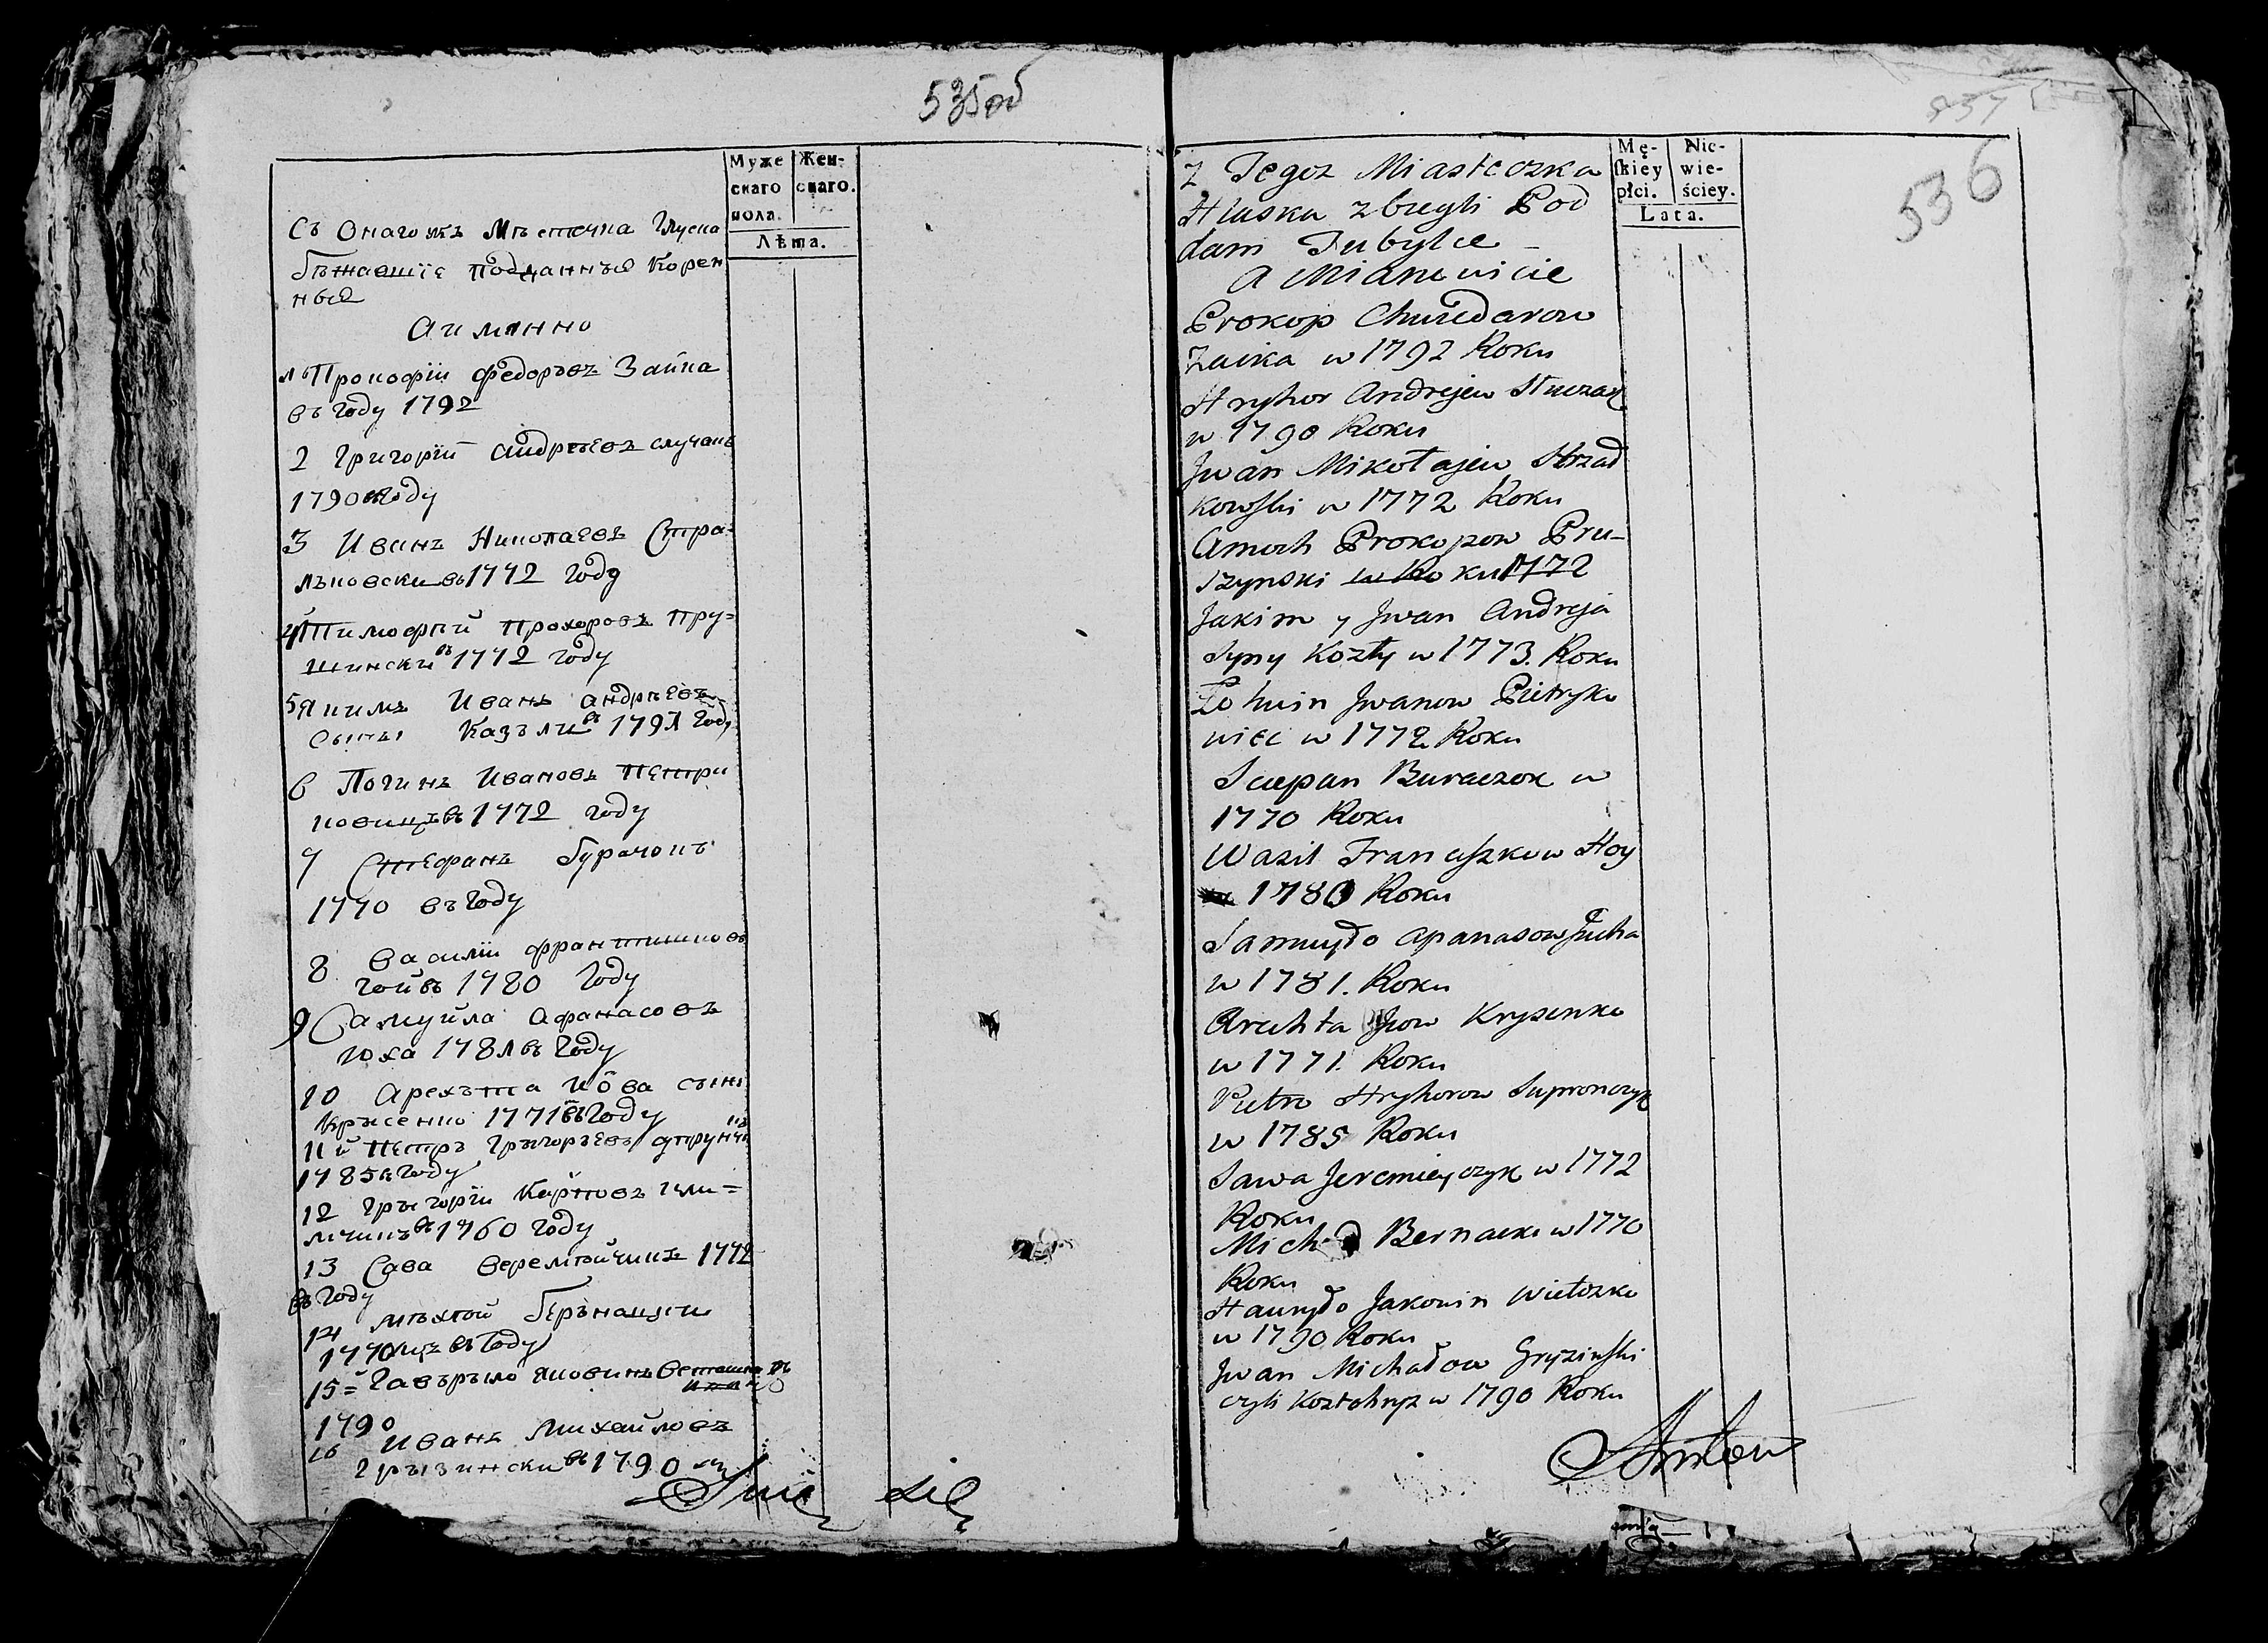 535об
Муже
скаго
пола.
Жен-
скаго.
Лѣта.
Съ Онагожъ Мѣстечка Глуска
бѣжавшїе подданныя Корен
ныя
Аимянно
1 Прокофїи Федоръвъ Заика
въ Году 1792
2 Григорїй Андрѣевъ случакъ
1790 въ Году
3 Иванъ Николаевъ Стра-
лъковски въ 1772 Году
4й Тимофѣй Прохоровъ Пру=
шински въ 1772 Году
5 Якимъ Иванъ Андрѣевъ
сыны Казъли въ 1791 Году
6 Логинъ Ивановъ Петри
ковицъ въ 1772 году
7 Стефанъ бурачокъ
1770 въ Году
8 Василїи францишковъ
Гой въ 1780 Году
9 Самуйла Афанасовъ
юха 1781 въ Году
10 Арехъта Иова сынъ
Крысенко 1771 въ Году
11й Петръ Грыгоръевъ
1785 въ Году
12 Грыгорїи Карповъ
въ 1760 Году
13 Сава еремѣйчикъ 1772
въ Году
14 Бернацки
1770 въ Году
15= Гавърыло Яковинъ
1790
16 Иванъ Михайловъ
Грызински въ 1790
536
Mę-
skiey
płci.
Nie-
wie-
ściey.
Lata.
z Tegoz Miasteczka
Hluska zbiegli Pod
dani Tubylce
a Mianowicie
Prokop Chwedorow
Zaika w 1792 Roku
Hryhor Andrejew Słuczak
w 1790 Roku
Jwan Mikołajew Strzał
kowski w 1772 Roku
Prokopow Pru-
szynski w Ro ku 1772
Jakim y Jwan Andreja
Syny Kozły w 1773. Roku
Lohwin Jwanow Pietryko
wiec w 1772 Roku
Sciepan Buraczok w
1770 Roku
Wasil Franciszkow Hoy
1780 Roku
Samuyło Apanasow Jucha
w 1781. Roku
Arechta Jow Krysenko
w 1771. Roku
Pietro Hryhorow Supronczyk
w 1785 Roku
Sawa Jeremieyczyk w 1772
Roku
Bernacki w 1770
Roku
Hawryło Jakowin Wietoszko
w 1790 Roku
Jwan Michałow Gryzinski
czyli w 1790 Roku